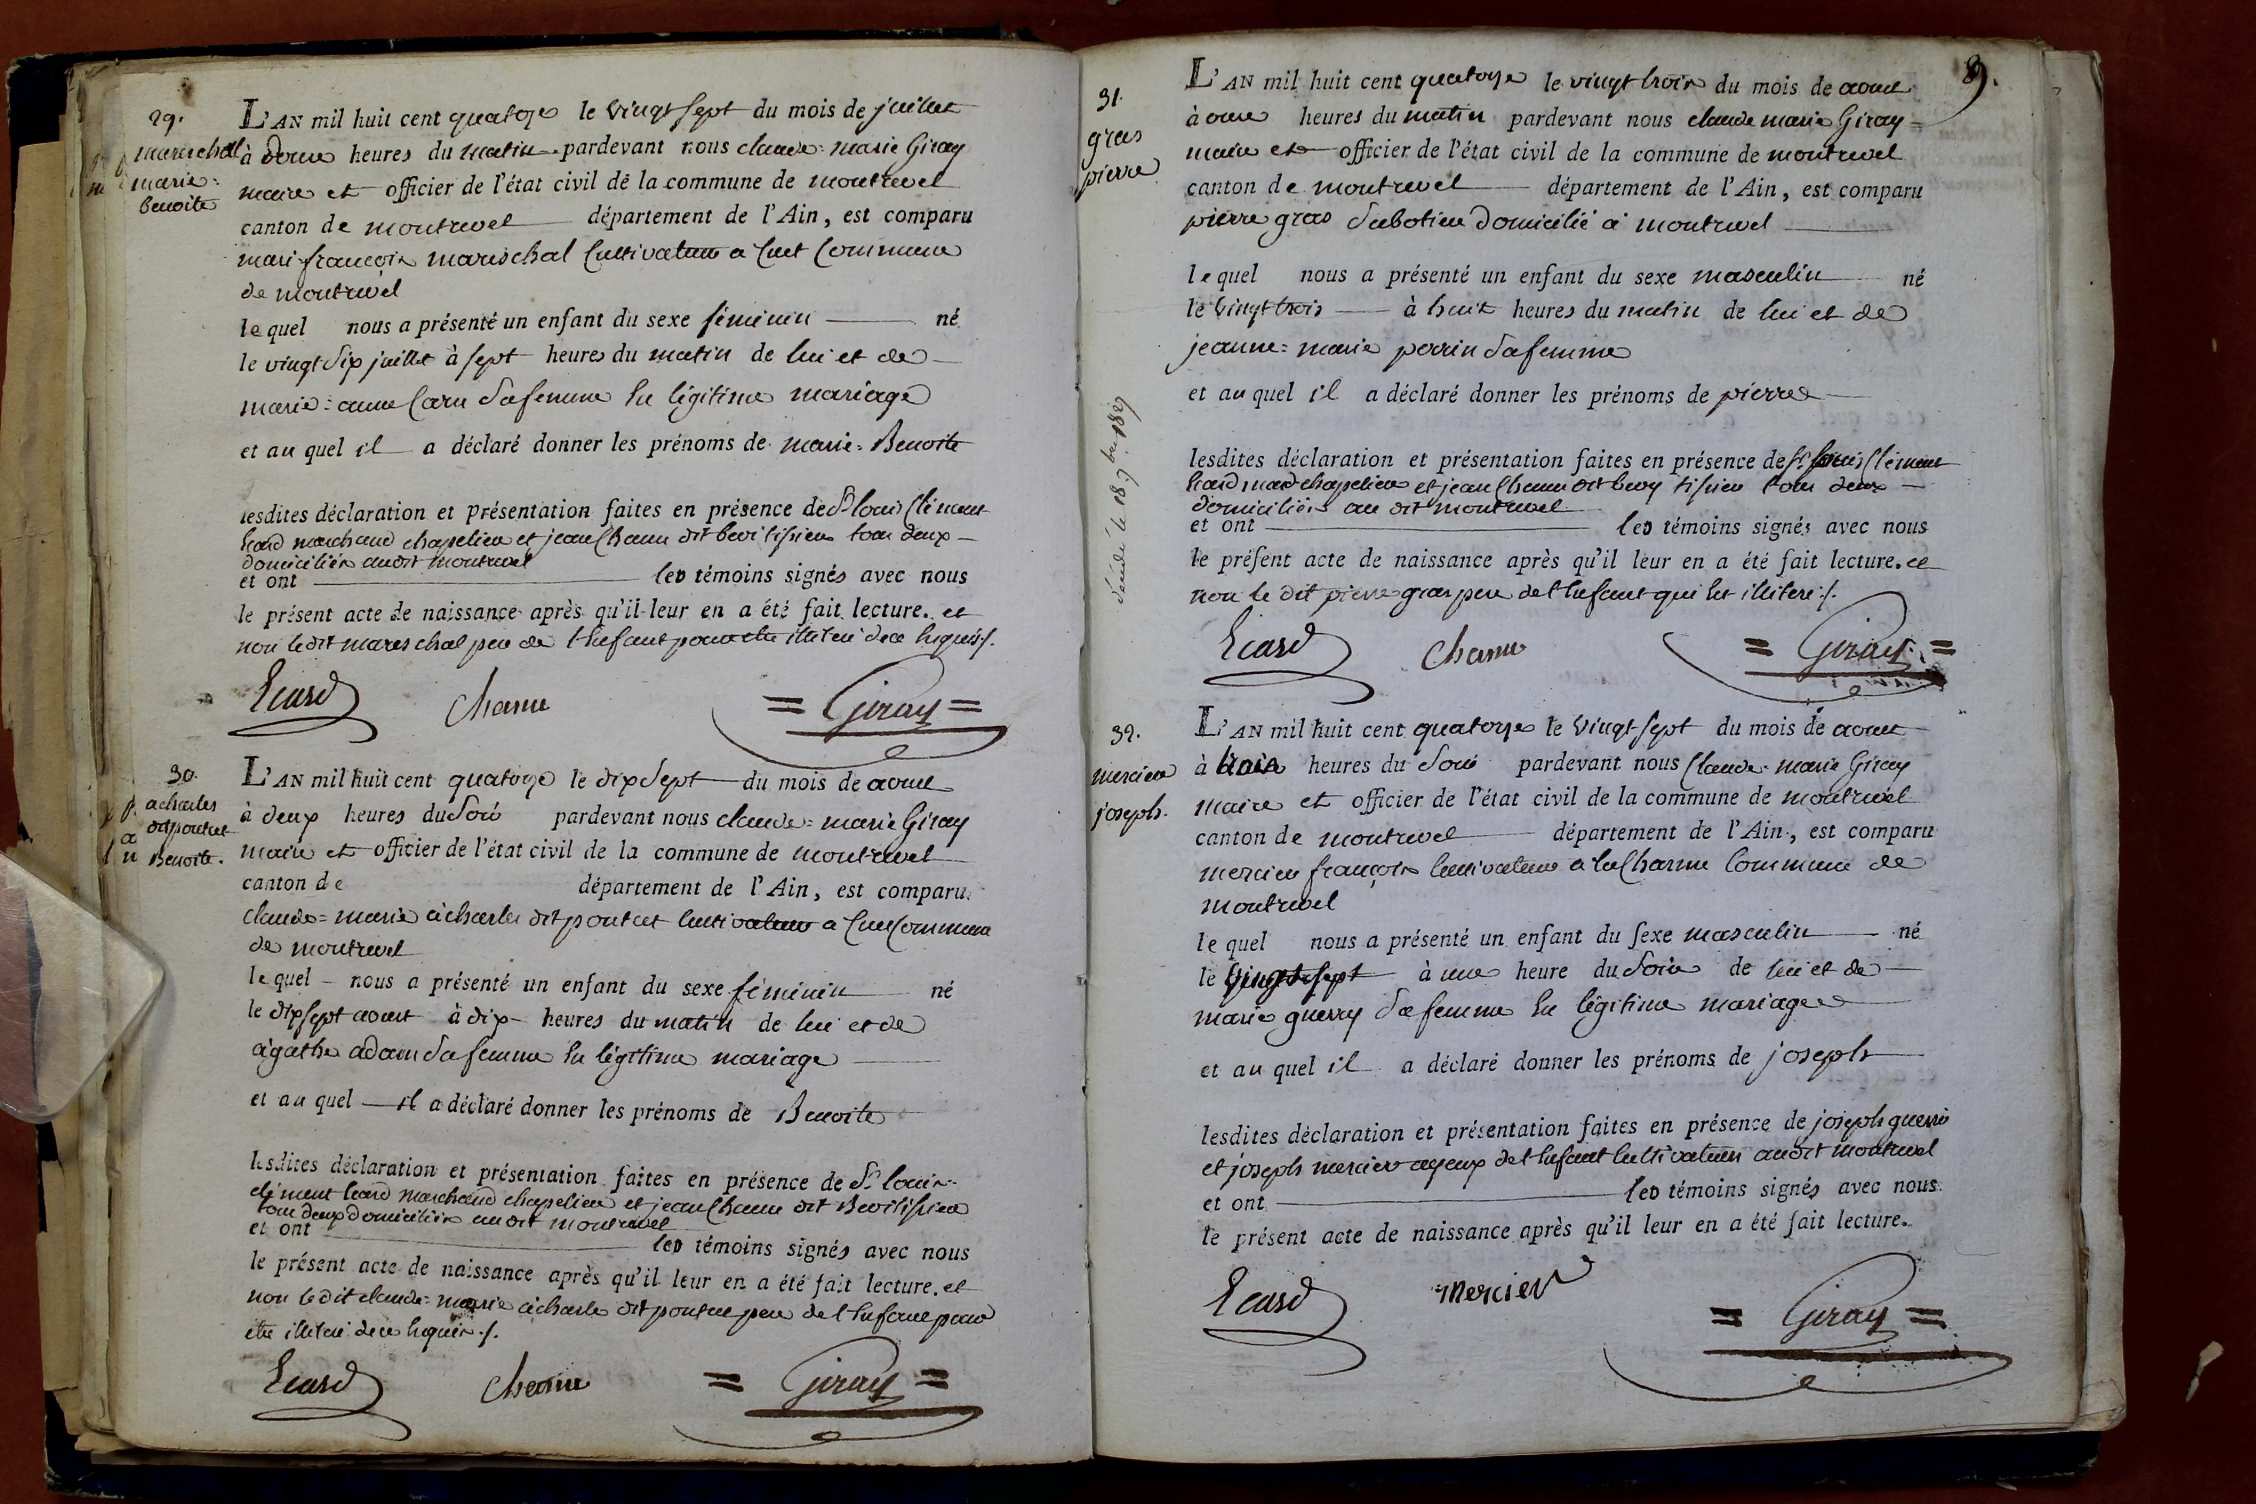 29.
mareschal
marie=
benoite
L'AN mil huit cent quatorze le vingt sept du mois de juillet
à heures du matin pardevant nous claude=marie Giray
maire et officier de l'état civil de la commune de montrevel
canton de montrevel département de l'Ain, est comparu
marie françois mareschal Cultivateur a Cuet Commune
de montrevel
le quel nous a présenté un enfant du sexe féminin né
le vingt six juillet à sept heures du matin de lui et de
marie=anne sa femme En légitime mariage
et au quel il a déclaré donner les prénoms de marie=Benoite
lesdites déclaration et présentation faites en présence de Sr louis Clément
Ecard marchand chapelier et jean Charme dit tissier tous deux
domiciliés audit montrevel
et ont les témoins signés avec nous
le présent acte de naissance après qu'il leur en a été fait lecture. et
non ledit mareschal pere de l'Enfant pour etre illiteré de ce Enquis./.
Ecard Charme =Giray=
30.
acharles
dit pontet
Benoite.
L'AN mil huit cent quatorze le dix sept du mois de aout
à deux heures du Soir pardevant nous claude=marie Giray
maire et officier de l'état civil de la commune de montrevel
canton de département de l'Ain, est comparu
claude=marie acharles dit pontet Cultivateur a Cuet Commune
de montrevel
le quel nous a présenté un enfant du sexe féminin né
le dix sept aout à dix heures du matin de lui et de
agathe adam Sa femme En légitime mariage
et au quel il a déclaré donner les prénoms de Benoite
lesdites déclaration et présentation faites en présence de Sr louis
clément Ecard marchand chapelier et jean Charme dit tissier
tous deux domiciliés audit montrevel
et ont les témoins signés avec nous
le présent acte de naissance après qu'il leur en a été fait lecture. et
non ledit claude=marie acharles dit pontet pere de l'Enfant pour
etre illiteré de ce Enquis./.
Ecard Charme =Giray=
9.
31.
gras
pierre
décédé le 18 1827
L'AN mil huit cent quatorze le vingt trois du mois de aout
à onze heures du matin pardevant nous claude marie Giray=
maire et officier de l'état civil de la commune de montrevel
canton de montrevel département de l'Ain, est comparu
pierre gras Sabotier domicilié à montrevel
le quel nous a présenté un enfant du sexe masculin né
le vingt trois à huit heures du matin de lui et de
jeanne=marie perrin Sa femme
et au quel il a déclaré donner les prénoms de pierre
lesdites déclaration et présentation faites en présence de Sr louis Clément
Ecard mard chapelier et jean Charme dit tissier tous deux
domiciliés au dit montrevel
et ont les témoins signés avec nous
le présent acte de naissance après qu'il leur en a été fait lecture. et
non le dit pierre gras pere de l'Enfant qui Est illiteré./.
Ecard Charme =Giray=
32.
mercier
joseph.
L'AN mil huit cent quatorze le vingt sept du mois de aout
à trois heures du Soir pardevant nous Claude=marie Giray
maire et officier de l'état civil de la commune de montrevel
canton de montrevel département de l'Ain, est comparu
mercier françois Cultivateur a la Charme Commune de
montrevel
le quel nous a présenté un enfant du sexe masculin né
le vingt sept à une heure du Soir de lui et de
marie guerry Sa femme En légitime mariage
et au quel il a déclaré donner les prénoms de joseph
lesdites déclaration et présentation faites en présence de joseph guerri
et joseph mercier ayeux de l'Enfant Cultivateurs audit montrevel
et ont les témoins signés avec nous
le présent acte de naissance après qu'il leur en a été fait lecture.
Ecard mercier =Giray=